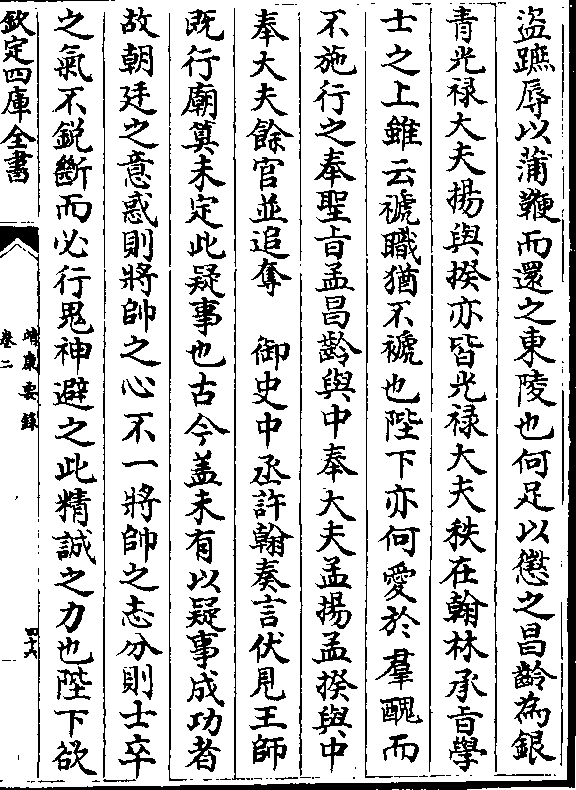 盜蹠辱以蒲鞭而還之東陵也何足以懲之昌齡為銀
青光禄大夫揚與揆亦皆光禄大夫秩在翰林承㫖學
士之上雖云褫職猶不褫也陛下亦何愛於羣醜而
不施行之奉聖㫖孟昌齡與中奉大夫孟揚孟揆與中
奉大夫餘官並追奪　御史中丞許翰奏言伏見王師
既行廟算未定此疑事也古今盖未有以疑事成功者
故朝廷之意惑則將帥之心不一將帥之志分則士卒
之氣不鋭斷而必行鬼神避之此精誠之力也陛下欲
欽定四庫全書
靖康要錄
卷二
四十六